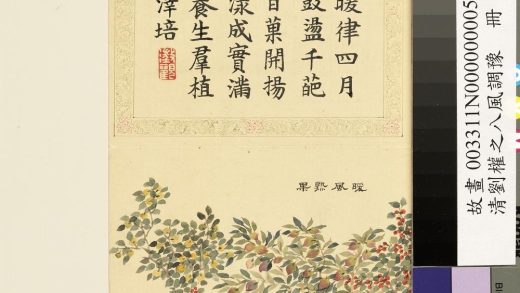 暖律四月
鼓盪千葩
百菓開揚
成實滿
養生羣植
培
暖風熟果
故畫 003311N000000005
清劉權之八風調豫 冊